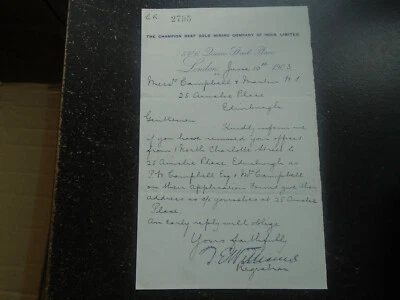 2795
THE CHAMPION REEF GOLD MINING COMPANY OF INDIA LIMITED.
6 & 7 Queen Street Place
London, June 10th 1903
Messrs Campbell & Martin
28 Ainslie Place
Edinburgh
Gentlemen
Kindly inform me
if you have removed your offices
from 1 North Charlotte Street to
28 Ainslie Place Edinburgh as
Campbell Esq & Mrs Campbell
on their Application Forms give their
address as c/o yourselves at 28 Ainslie
Place.
An early reply will oblige
Yours faithfully
Registrar